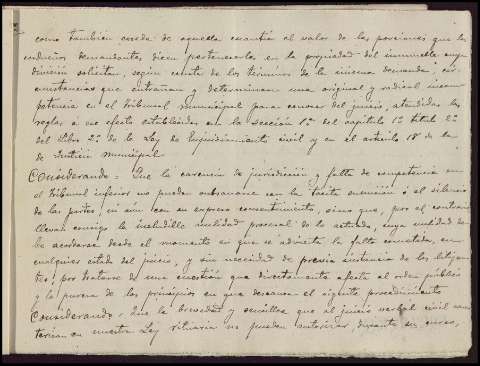 como tambien excede de aquella cuantia el valor de las porciones que los
condueños demandantes dicen pertenecerles en la propiedad del inmueble cuya
division solicitan, según consta de los términos de la misma demanda, cir-
cunstancias que entrañan y determinan una original y radical incom-
potencia en el Tribunal municipal para conocer del juicio, atendidas las
reglas a ese efecto establecidas en la Sección 1ª del capítulo 1º título 2º
del Libro 2º de la Ley de Enjuiciamiento civil y en el artículo 18 de la
de Justicia municipal
Considerando = Que la carencia de jurisdiccion y falta de competencia en
el Tribunal inferior no pueden subsanarse con la tácita sumisión ó el silencio
de las partes, ni aun con su expreso consentimiento, sino que, por el contrario
llevan consigo la ineludible nulidad procesal de lo actuado, cuya nulidad debe
acordarse desde el momento en que se advierta la falta cometida, en
cualquier estado del juicio, y sin necesidad de previa instancia de los litigan-
tes, por tratarse de una cuestión que directamente afecta al orden público
y á la pureza de los principios en que descansa el vigente procedimiento
Considerando = Que la brevedad y sencillez que al juicio verbal civil carac-
terizan en nuestra Ley rituaria no pueden autorizar, durante su curso,